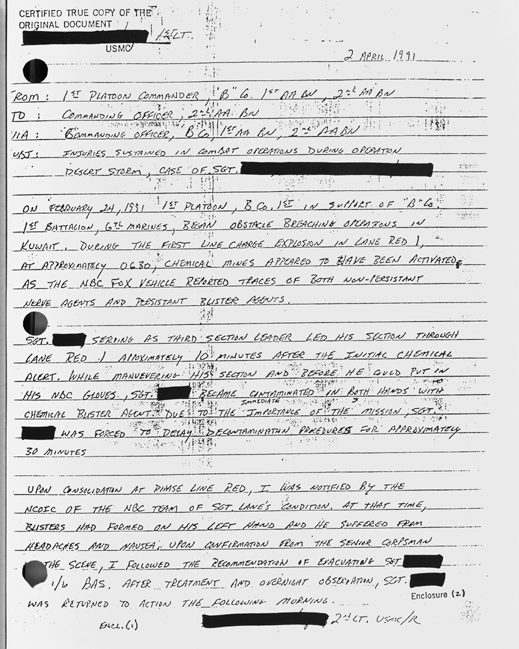 CERTIFIED TRUE COPY OF THE
ORIGINAL DOCUMENT
1stLT.
USMC
2 APRIL 1991
ROM: 1ST PLATOON COMMANDER, "B" CO. 1ST AA BN, 2nd AA BN
TO: COMMANDING OFFICER, 2nd AA BN
IIA: COMMANDING OFFICER, B CO, 1ST AA BN, 2nd AA BN
UBJ: INJURIES SUSTAINED IN COMBAT OPERATIONS DURING OPERATION
DESERT STORM, CASE OF SGT.
ON FEBRUARY 24, 1991 1ST PLATOON, B CO. 1ST IN SUPPORT OF "B" CO
1ST BATTALION, 6TH MARINES, BEGAN OBSTACLE BREACHING OPERATIONS IN
KUWAIT. DURING THE FIRST LINE CHARGE EXPLOSION IN LANE RED 1,
AT APPROXIMATELY 0630, CHEMICAL MINES APPEARED TO HAVE BEEN ACTIVATED,
AS THE NBC FOX VEHICLE REPORTED TRACES OF BOTH NON-PERSISTANT
NERVE AGENTS AND PERSISTANT BLISTER AGENTS.
SGT. SERVING AS THIRD SECTION LEADER LED HIS SECTION THROUGH
LANE RED 1 APOXIMATELY 10 MINUTES AFTER THE INITIAL CHEMICAL
ALERT. WHILE MANUEVERING HIS SECTION AND BEFORE HE COULD PUT IN
HIS NBC GLOVES, SGT. BECAME CONTAMINATED IN BOTH HANDS WITH
CHEMICAL BLISTER AGENT. DUE TO THE IMMEDIATE IMPORTANCE OF THE MISSION, SGT.
WAS FORCED TO DELAY DECONTAMINATION PROCEDURES FOR APPROXIMATELY
30 MINUTES
UPON CONSOLIDATION AT PHASE LINE RED, I WAS NOTIFIED BY THE
NCOIC OF THE NBC TEAM OF SGT. LANE'S CONDITION. AT THAT TIME,
BLISTERS HAD FORMED ON HIS LEFT HAND AND HE SUFFERED FROM
HEADACHES AND NAUSEA. UPON CONFIRMATION FROM THE SENIOR CORPSMAN
THE SCENE, I FOLLOWED THE RECOMMENDATION OF EVACUATING SGT
1/6 BAS. AFTER TREATMENT AND OVERNIGHT OBSERVATION, SGT.
WAS RETURNED TO ACTION THE FOLLOWING MORNING.
Enclosure (2)
ENCL. (1)
2nd LT. USMC/R